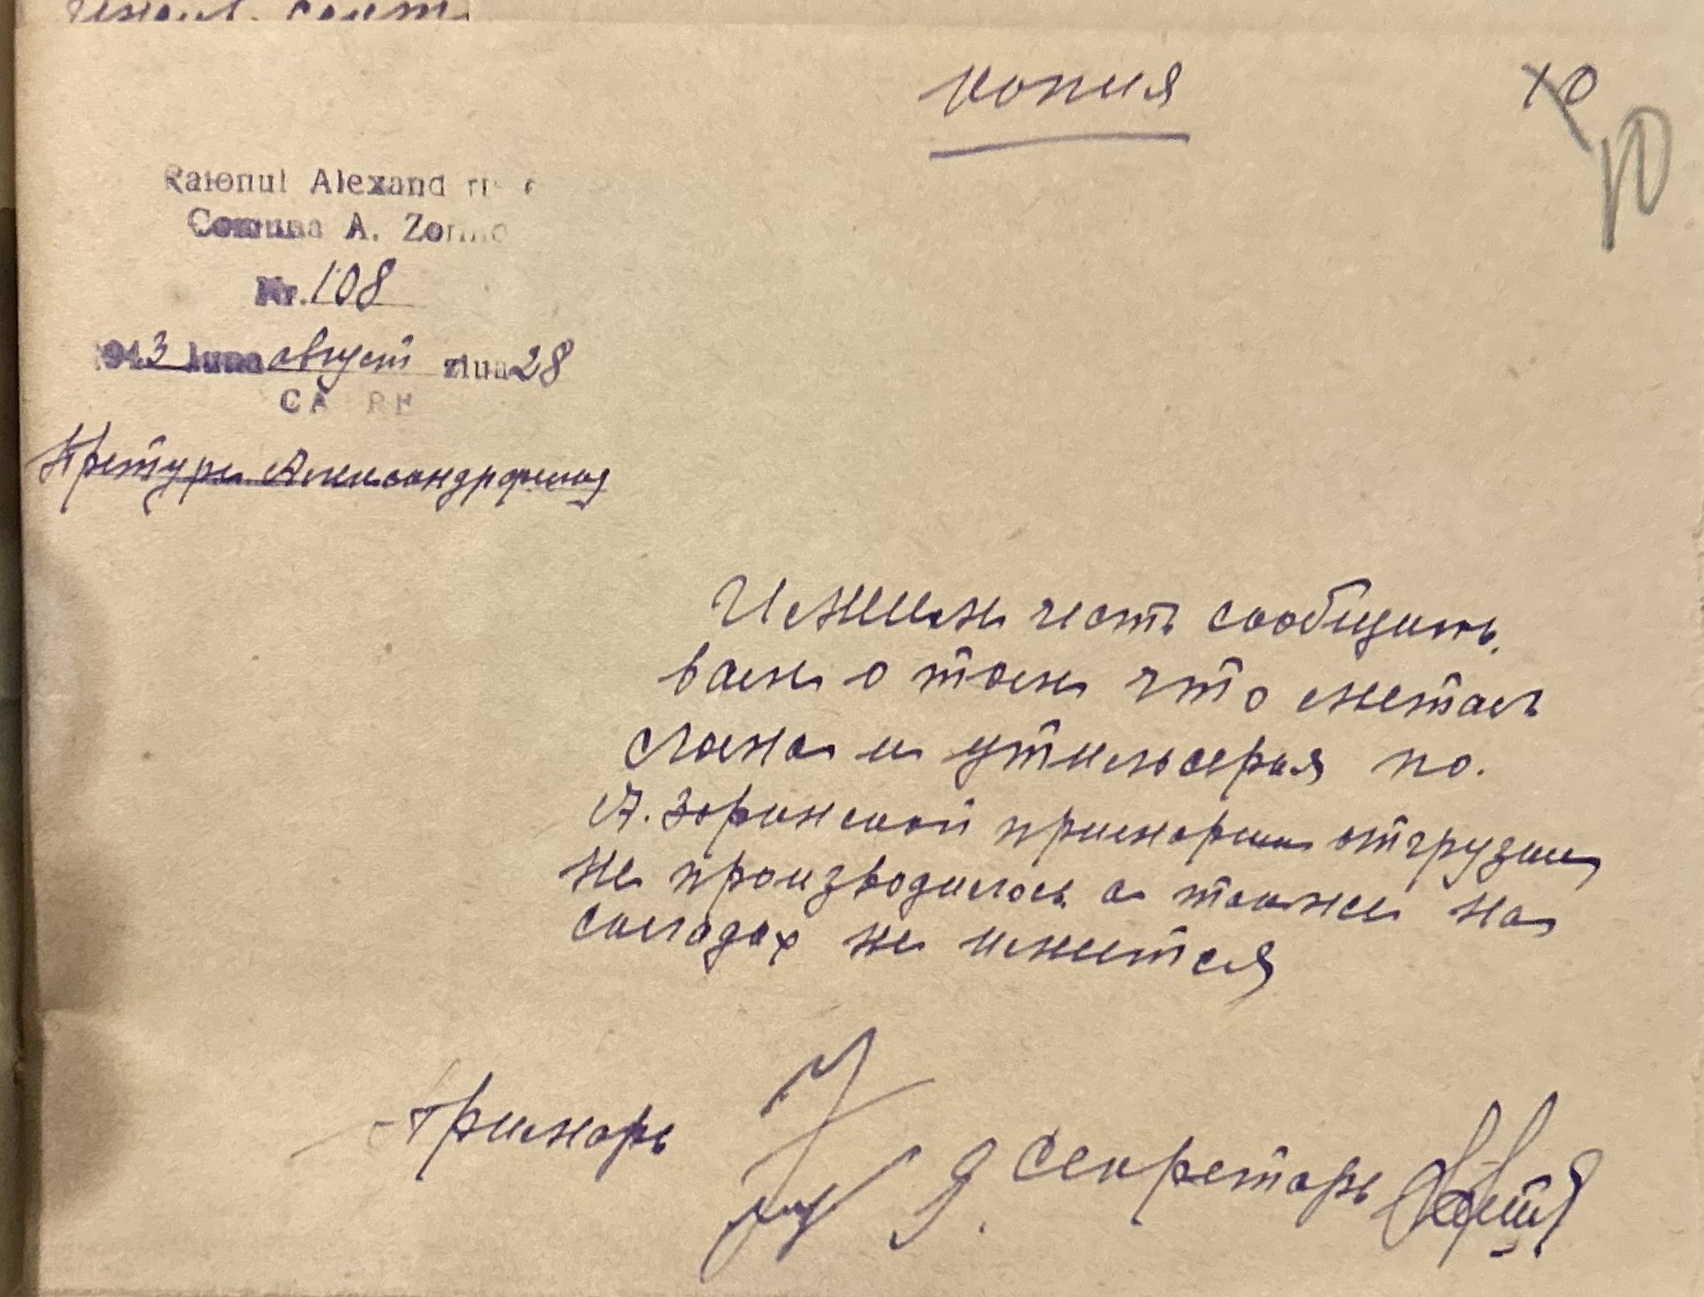 Копия
10
10
Raionul Alexand
Comuna A. Zorino
Nr. 108
1943 luna август ziua 28
CĂ RE
Претуре Александрфельд
Имеим чест сообщить
вам о том что метал
лома и утильсерья по.
А. Зоринской примарии отгрузки
не производилось а также на
складах не имеется
Примарь
Секретарь